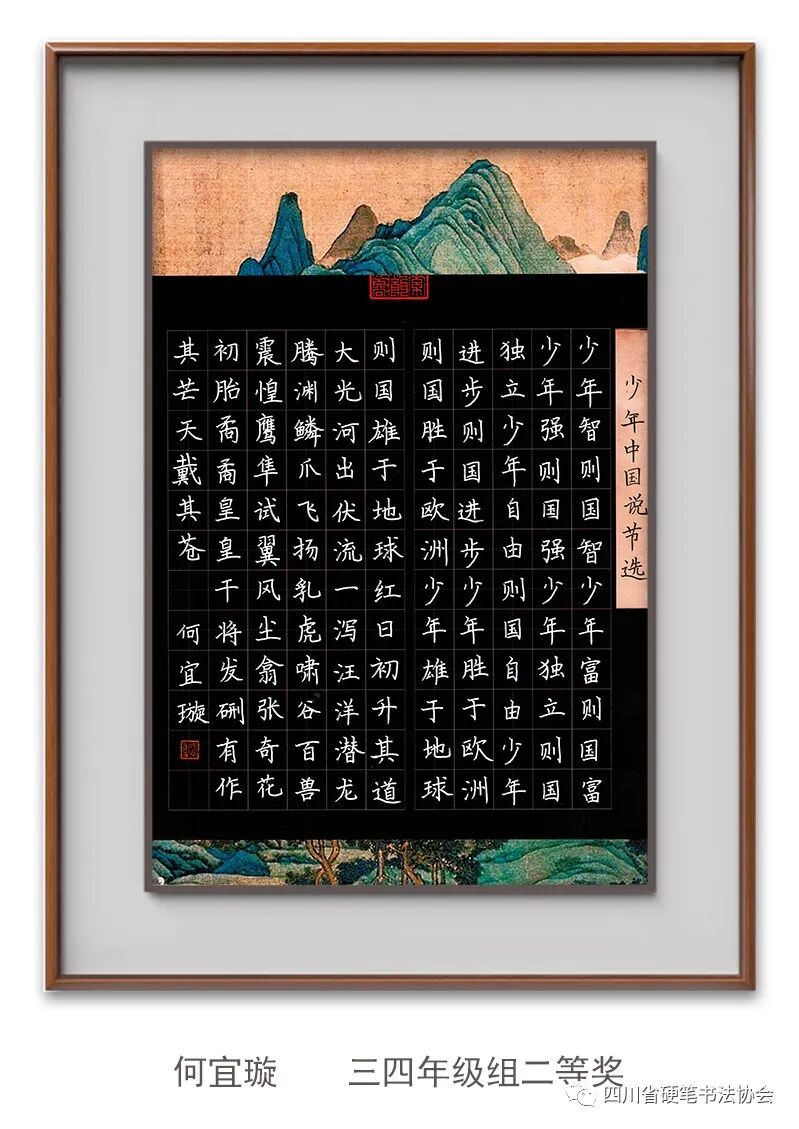 少年中国说节选
少年智则国智少年富则国富
少年强则国强少年独立则国
独立少年自由则国自由少年
进步则国进步少年胜于欧洲
则国胜于欧洲少年雄于地球
则国雄于地球红日初升其道
大光河出伏流一泻汪洋潜龙
腾渊鳞爪飞扬乳虎啸谷百兽
震惶鹰隼试翼风尘翕张奇花
初胎矞矞皇皇干将发硎有作
其芒天戴其苍 何宜璇
何宜璇 三四年级组二等奖
四川省硬笔书法协会